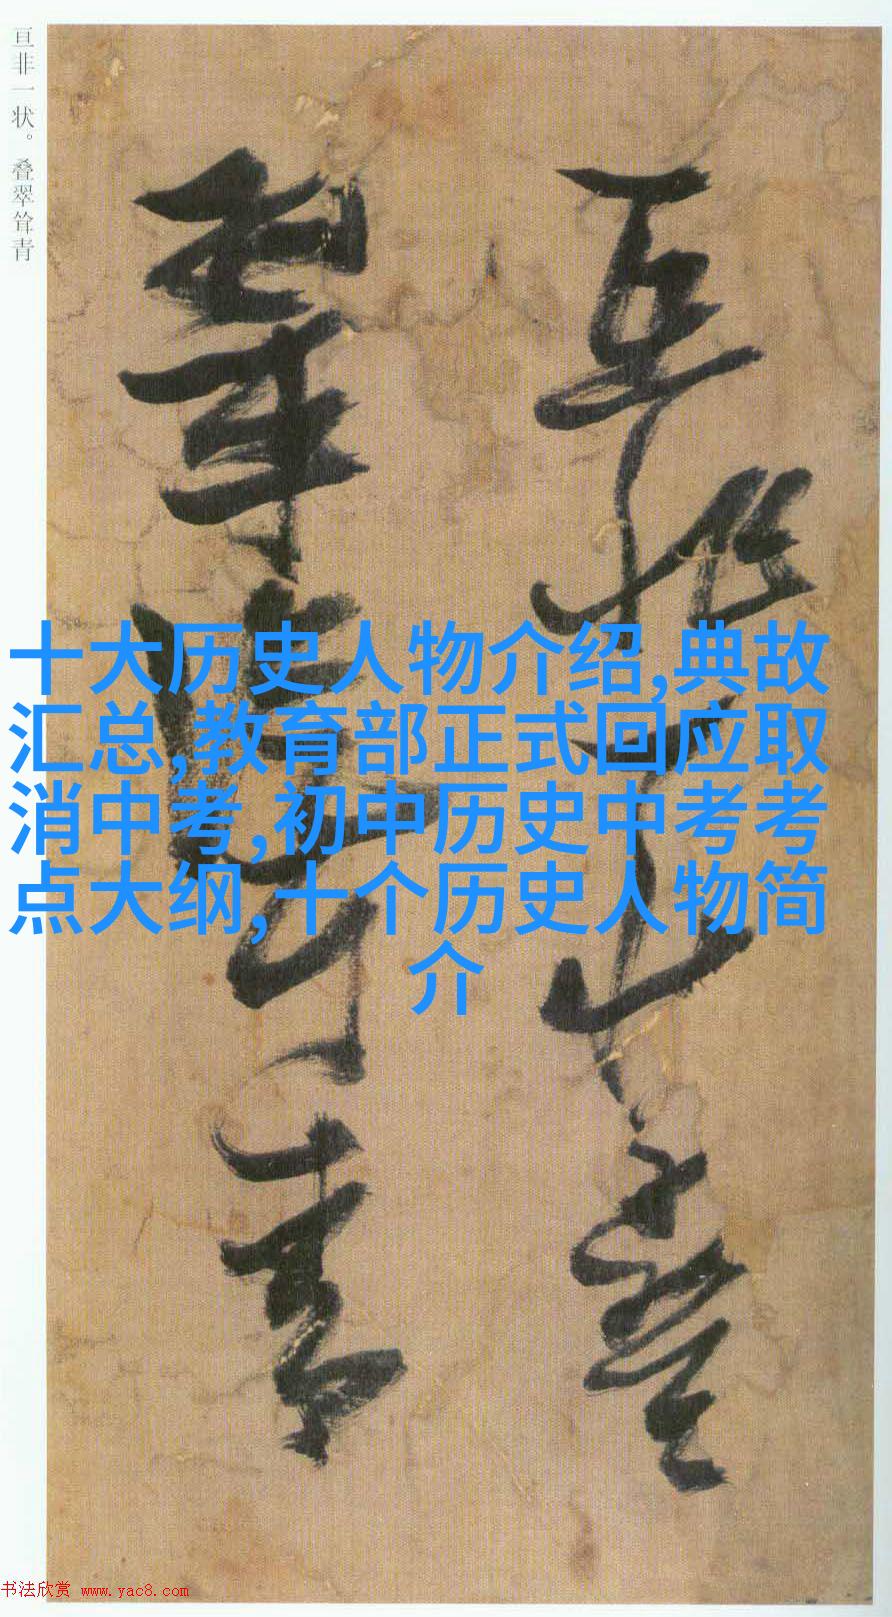 亘非一状。叠翠耸青
十大历史人物介绍,典故
汇总,教育部正式回应取
消中考,初中历史中考考
点大纲,十个历史人物简
介
书法欣赏 www.yac8.com